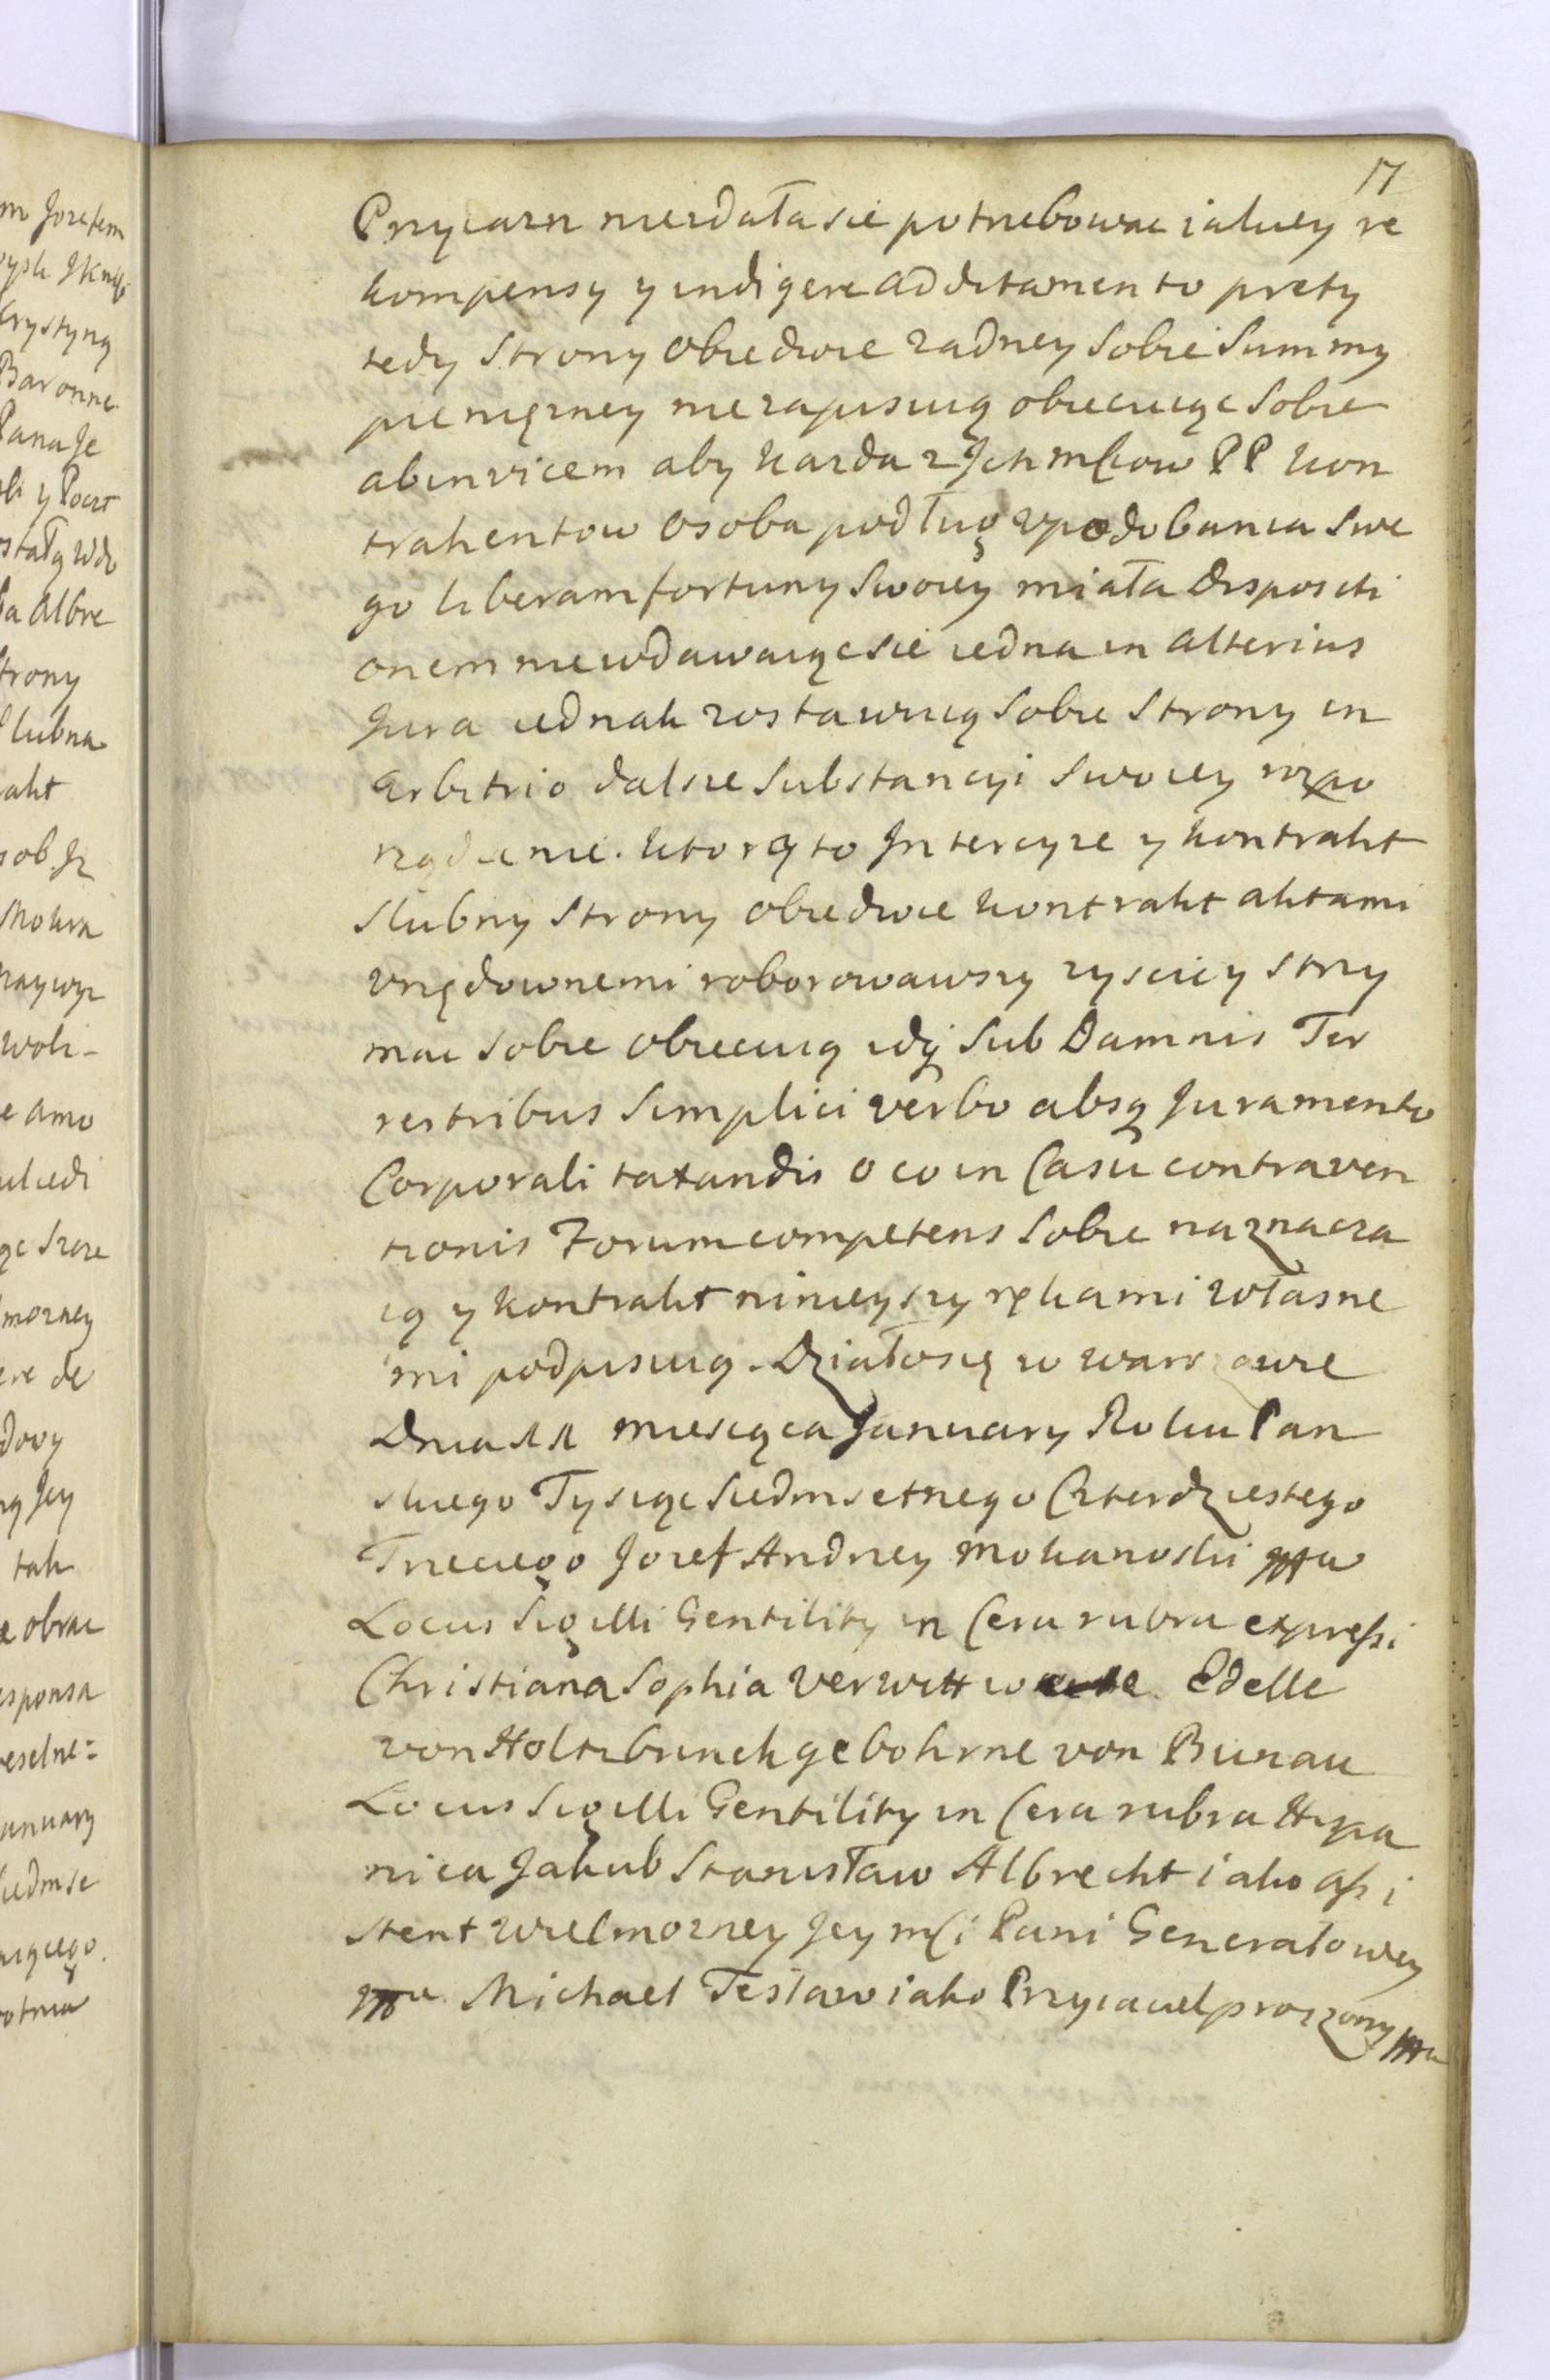 17
Przyiazn niezdała sie potrzebowac iakiey re
kompensy y indigere additamento prety
tedy Strony obiedwie zadney Sobie Summy
pieniężney niezapisuią obiecuiąc Sobie
abinvicem aby kazda z Jchmściow PP kon
trahentow osoba podług upodobania Swe
go liberam fortuny Swoiey miała Dispositi
onem niewdawaiąc sie iedna in alterius
Jura iednak zostawuią Sobie Strony in
arbitrio dalsze Substancyi Swoiey rozpo
rządzenie. ktorą to Jntercyze y kontrakt
Slubny Strony obiedwie kontrakt aktami
vrzędownemi roborowawszy zyscic y strzy
mac Sobie obiecuią idą Sub Damnis Ter
restribus Simplici verbo absą Juramento
Corporali taxandis o co in Casu contraven
tionis Forum competens Sobie naznacza
ią y kontrakt ninieyszy rękami własne
mi podpisuią. Działo się w warszawie
Dnia 11 miesiąca January Roku Pan
skiego Tysiąc Siedmsetnego Czterdziestego
Trzeciego Jozef Andrzey Mokranoski mpu
Locus Sigilli Gentility in Cera rubra expreſsi
Christiana Sophia Verwittwete Edelle
von Holtzbrinck gebohrne von Bunau
Locus Sigilli Gentility in Cera rubra Hispa
nica Jakub Stanisław Albrecht iako aſsi
stent wielmozney Jey mści Pani Generałowey
mpu Michael Teslaw iako Przyiaciel proszony mpu
m Jozefem
Krystyną
Baronne
Pana Je
li y Poczt
stałą wdo
ba Albre
Strony
Slubna
akt
sob Jz
Mokra
naywyz
woli-
e amo
ąc Szcze
lmozney
ere de
dowy
ą Jey
tak
e obrac
esponsa
eselne=
anuary
Siedmse
aiącego.
otnia